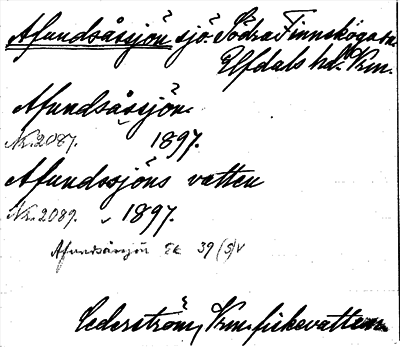 Afundsåssjön sjö. Södra Finnskoga sn.
Elfdals hd. Vrm.
Afundsåssjön.
Nr. 2087. 1897.
Afundssjöns vatten
Nr. 2089. " 1897.
Afundsåssjön EK 39 (S)V
Cederström, Vrm. fiskevatten.